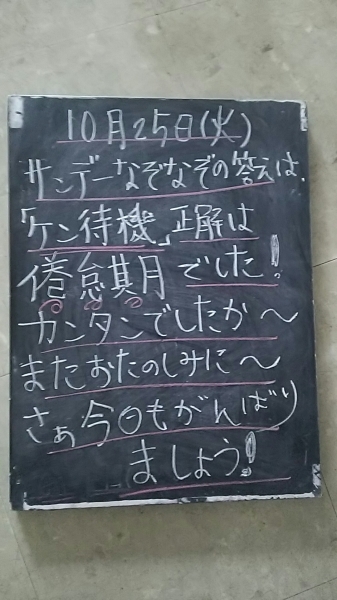 10月25日(火)
サンデーなぞなぞの答えは、
「ケン待機」正解は
倦怠期月でした!
カンタンでしたか～
またおたのしみに～
さぁ今日もがんばり
ましょう!